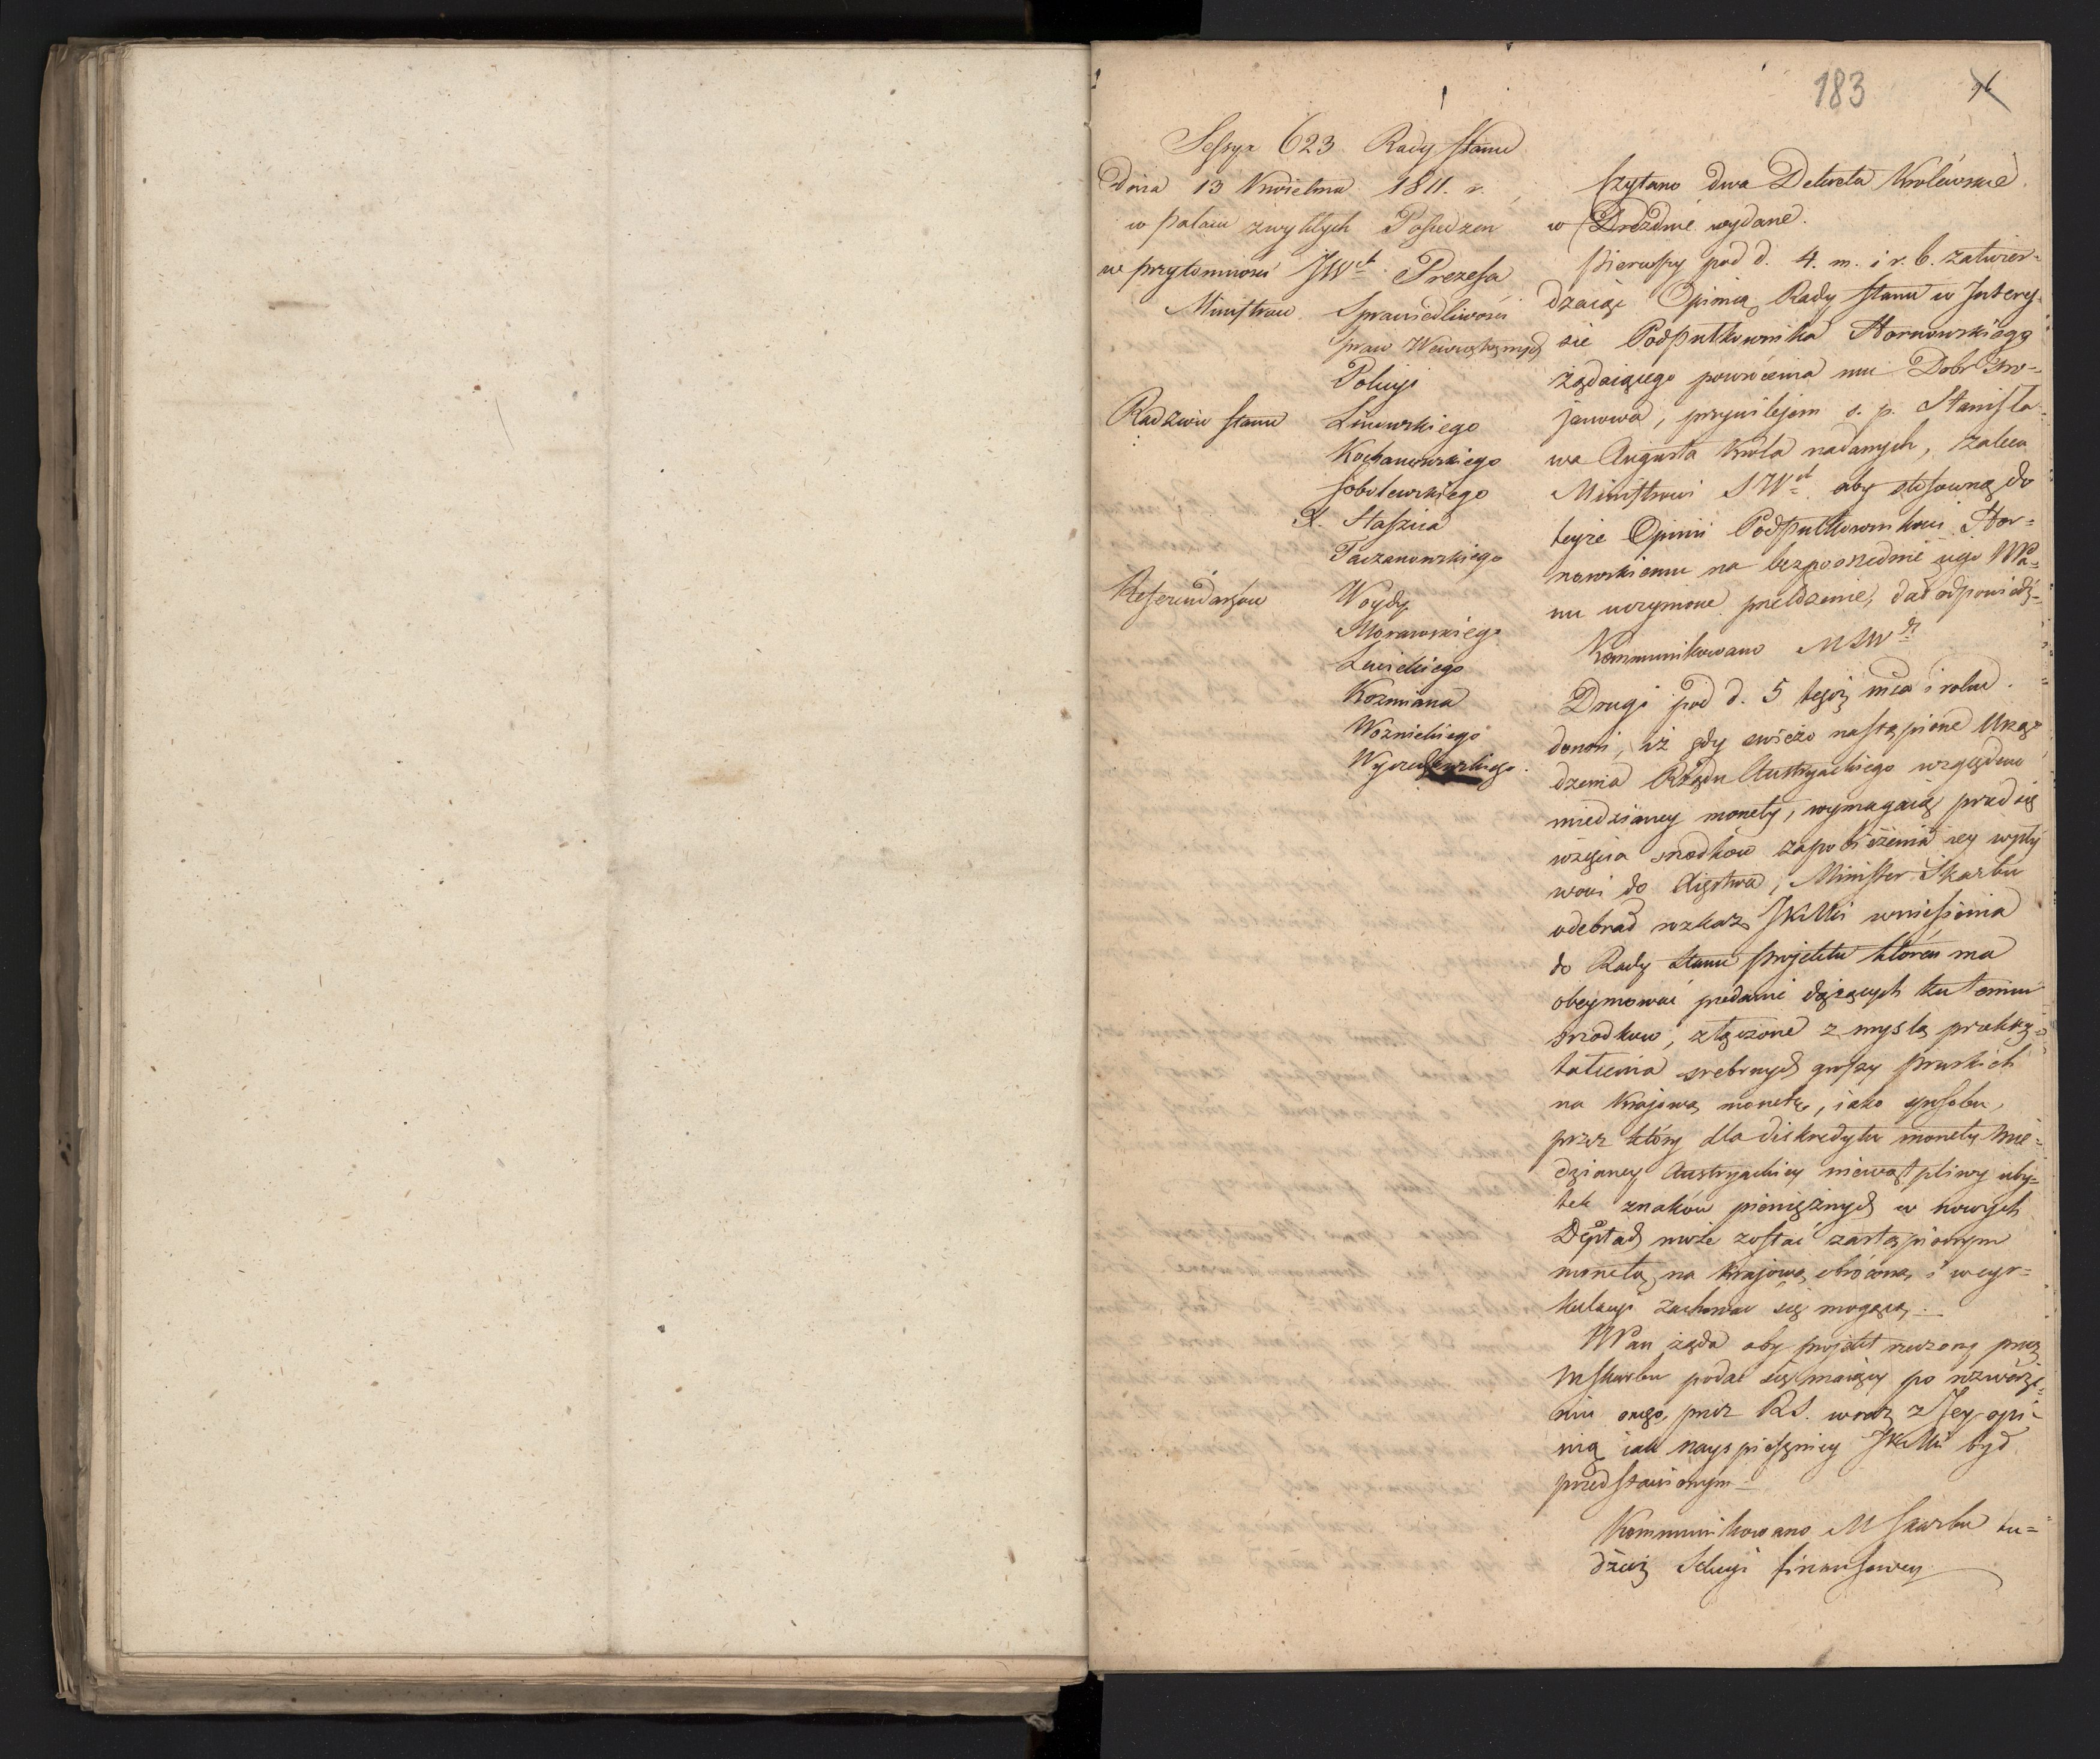 183
Sessya 623 Rady Stanu
Dnia 13 Kwietnia 1811. r.
w Pałacu zwykłych Posiedzeń
w przytomności JW Prezesa
Ministrów Sprawiedliwości
praw Wewnętrznych
Policyi
Radzców Stanu Linowskiego
Kochanowskiego
Sobolewskiego
X. Staszica
Taczanowskiego
Referendarzów Woydy
Morawskiego
Lewickiego
Kozmiana
Woznickiego
Czytano dwa Dekreta Królewskie
w Dreźdnie wydane.
Pierwszy pod d. 4. m. i r. b. zatwier=
dzaiąc Opinią Rady Stanu w Interes=
sie Podpułkownika Hornowskiego
żądaiącego powrócenia mu Dobr
janowa, przywilejem ś. p. Stanisła=
wa Augusta Króla nadanych, zaleca
Ministrowi SW aby stosowną do
teyże Opinii Podpułkownikowi Hor=
nowskiemu na bezpośrednie jego NPa=
nu uczynione przełożenie, dał odpowiedź.
Kommunikowano MSW
Drugi pod d. 5 tegoż mca i roku
donosi, iż gdy świeżo nastąpione Urzą=
dzenia Rządu Austryackiego względem
miedzianey monety, wymagaią przedsię
wzięcia srodków zapobieżenia iey wpły
wowi do Xięstwa, Minister Skarbu
odebrał rozkaz JKMci wniesienia
do Rady Stanu projektu któren ma
obeymować podanie dążących ku temu
srodków, złączone z mysłą przekszt=
tałcenia srebrnych groszy pruskich
na krajową monetę, iako sposobu,
przez który dla diskredytu monety mie=
dzianey Austryackiey niewątpliwy uby=
tek znaków pieniężnych w nowych
Deptach może zostać zastąpionym
monetą na krajową obróconą i w cyr=
kulacyi zachować się mogącą.
NPan żąda aby projekt rzeczony przez
MSkarbu podać się maiący po rozważe=
niu onego, przez RS. wraz z Jey opi=
nią iak nayspieszniey JKMci był
przedstawionym
Kommunikowano M Skarbu tu=
dzież Sekcyi finansowey